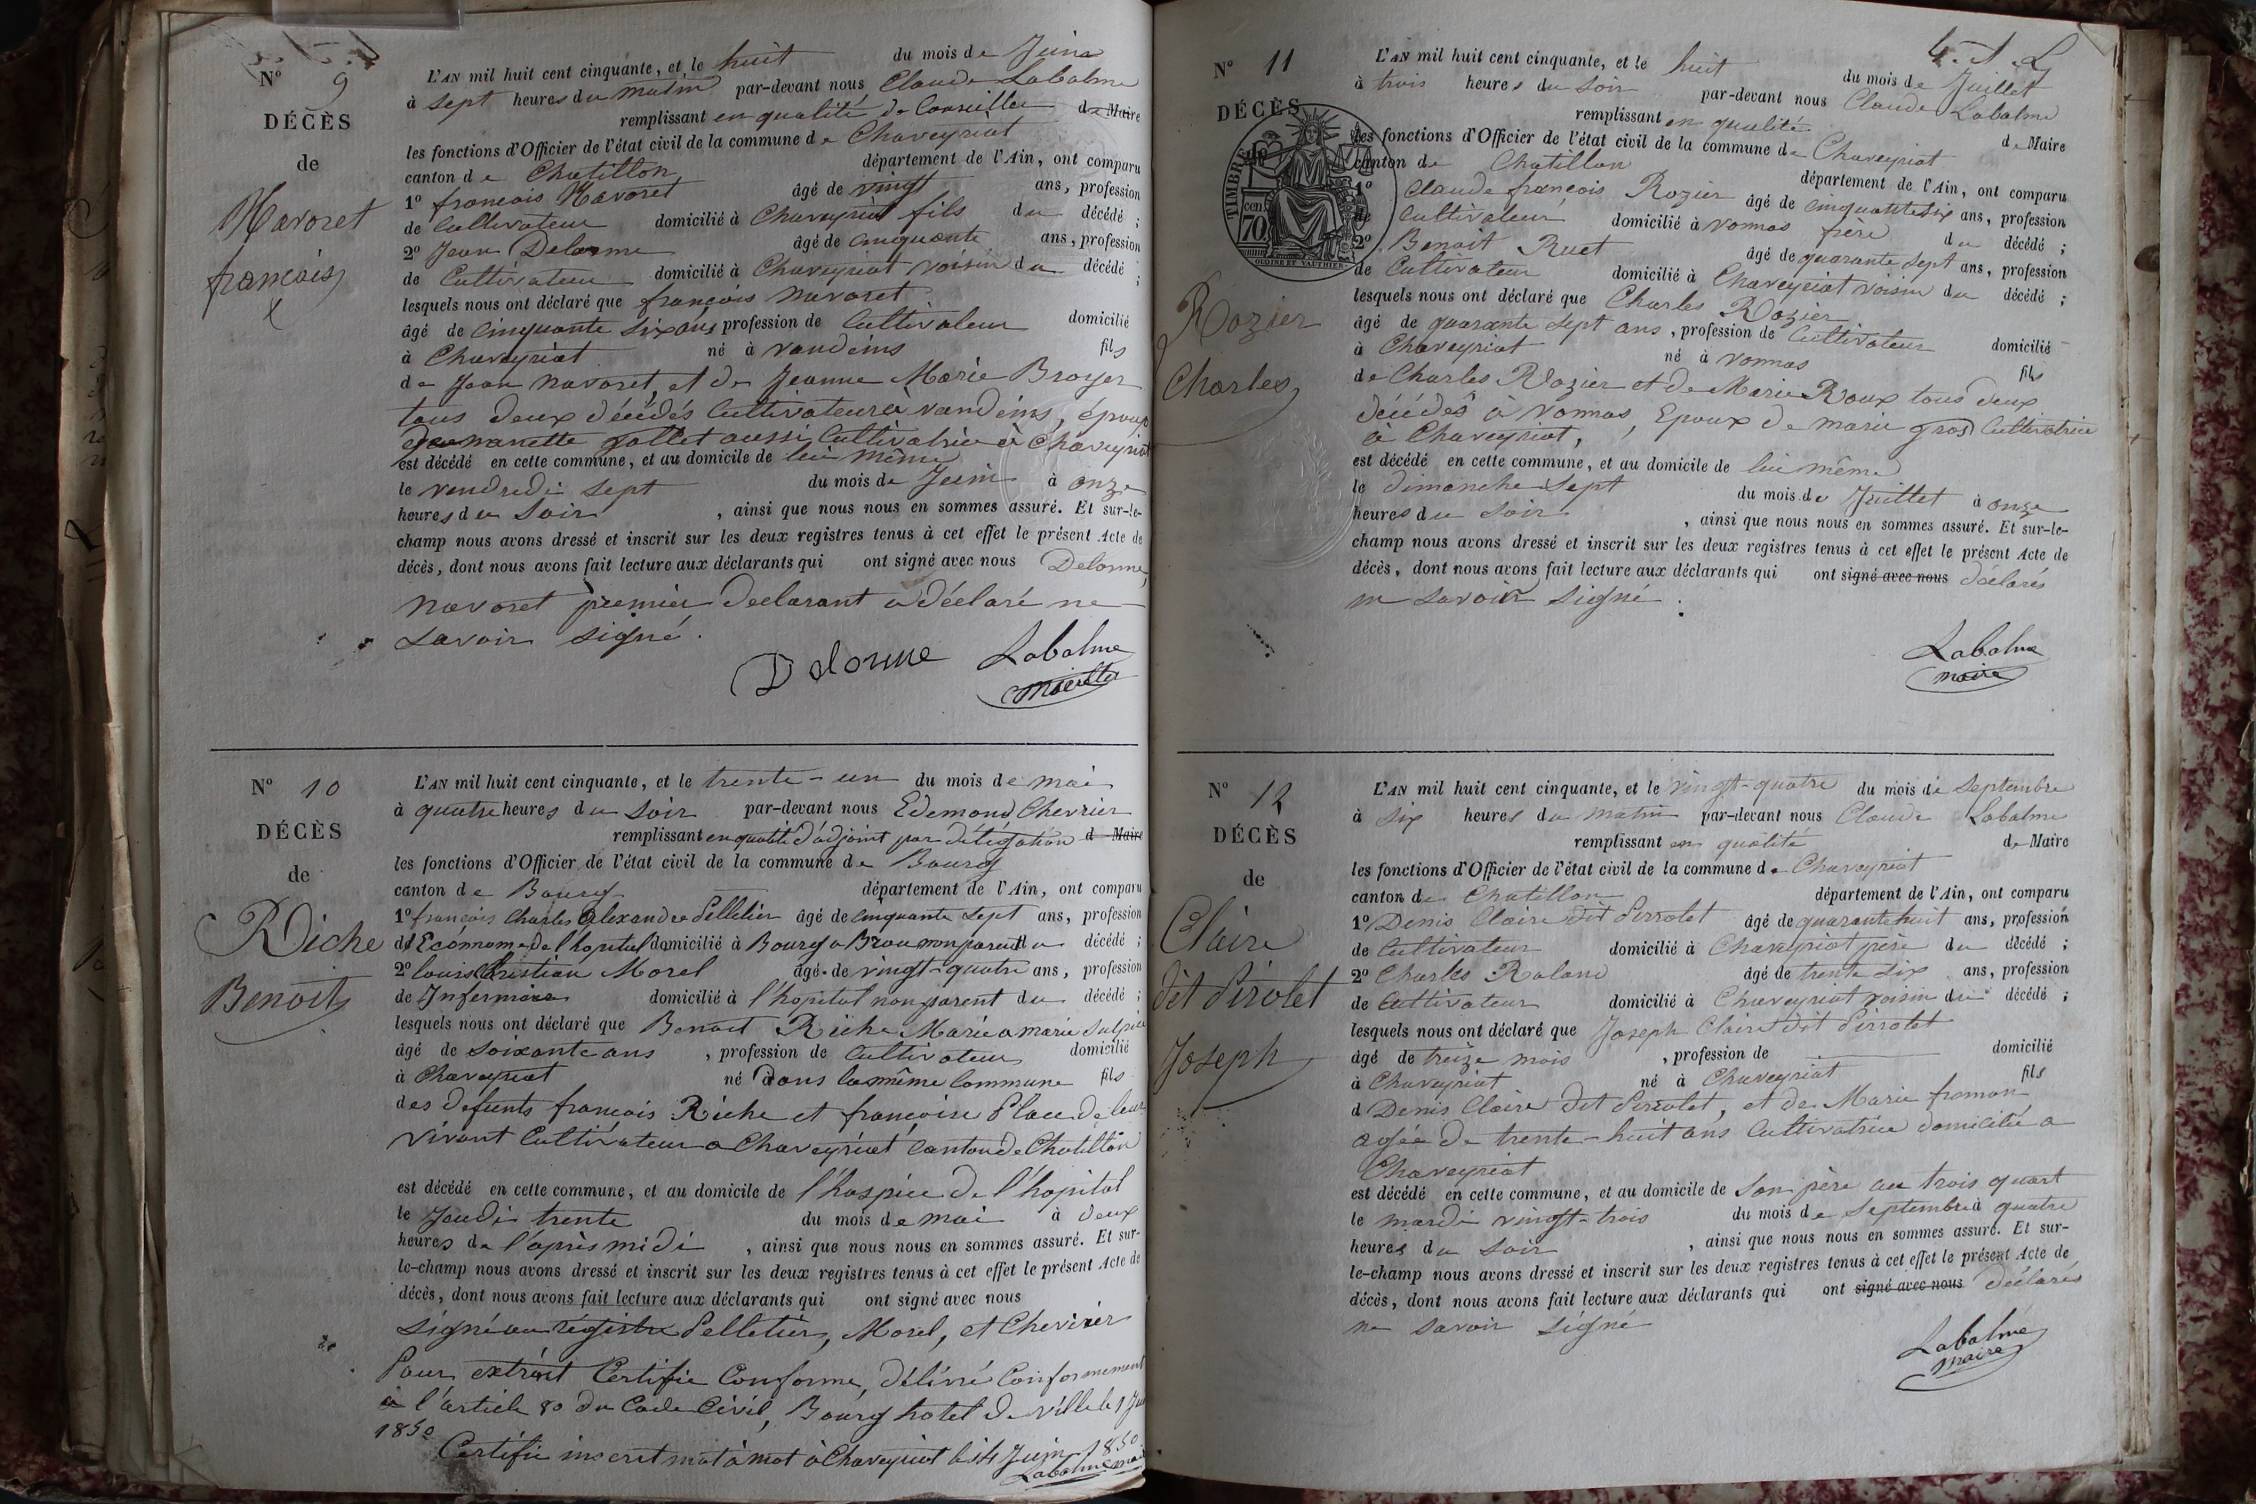 N° 9
DÉCÈS
de
Navoret
françois
L'AN mil huit cent cinquante, et le huit du mois de Juin
à sept heures du matin par-devant nous Claude Labalme
remplissant en qualité de Conseiller de Maire
les fonctions d'Officier de l'état civil de la commune de Chaveyriat
canton de Chatillon département de l'Ain, ont comparu
1° françois Navoret âgé de vingt ans, profession
de Cultivateur domicilié à Chaveyriat fils du décédé ;
2° Jean Delorme âgé de cinquante ans, profession
de Cultivateur domicilié à Chaveyriat voisin du décédé ;
lesquels nous ont déclaré que françois Navoret
âgé de cinquante six ans, profession de Cultivateur domicilié
à Chaveyriat né à vandeins fils
de Jean Navoret, et de Jeanne Marie Broyer
tous deux décédés Cultivateurs à vandeins, époux
manette gollet aussi Cultivatrice à Chaveyriat
est décédé en cette commune, et au domicile de lui même
le vendredi sept du mois de Juin à onze
heures du Soir , ainsi que nous nous en sommes assuré. Et sur-le-
champ nous avons dressé et inscrit sur les deux registres tenus à cet effet le présent Acte de
décès, dont nous avons fait lecture aux déclarants qui ont signé avec nous Delorme,
Navoret premier declarant a déclaré ne
savoir signé.
Delorme Labalme
N° 10
DÉCÈS
de
Riche
Benoit
L'AN mil huit cent cinquante, et le trente-un du mois de mai
à quatre heures du soir par-devant nous Edemond Chevrier
remplissant en qualité d'adjoint par délégation d Maire
les fonctions d'Officier de l'état civil de la commune de Bourg
canton de Bourg département de l'Ain, ont comparu
1° françois Charles Alexandre Pelletier âgé de cinquante sept ans, profession
d'Econnome de l'hopital domicilié à Bourg a Brou non parent du décédé ;
2° louis Christian Morel âgé de vingt-quatre ans, profession
de Infermier domicilié à l'hopital non parent du décédé ;
lesquels nous ont déclaré que Benoit Riche Marié a marie Sulpice
âgé de soixante ans , profession de Cultivateur domicilié
à Chaveyriat né dans la même Commune fils
des defunts françois Riche et françoise Place de leur
vivant Cultivateur a Chaveyriat canton de Chatillon
est décédé en cette commune, et au domicile de l'hospice de l'hopital
le Jeudi trente du mois de mai à deux
heures de l'après midi , ainsi que nous nous en sommes assuré. Et sur-
le-champ nous avons dressé et inscrit sur les deux registres tenus à cet effet le présent Acte de
décès, dont nous avons fait lecture aux déclarants qui ont signé avec nous
signé au régistre Pelletier, Morel, et Chevrier
Pour extrait Certifié Conforme, délivré Conformement
à l'article 80 du Code Civil, Bourg hotel de ville le 1 Juin
1850
Certifié inscrit mot à mot à Chaveyriat le 14 Juin 1850
Labalme maire
N° 11
DÉCÈS
de
TIMBRE
cen 70
OUDINÉ ET VAUTHIER
Rozier
Charles
L'AN mil huit cent cinquante, et le huit du mois de Juillet
à trois heures du soir par-devant nous Claude Labalme
remplissant en qualité de Maire
les fonctions d'Officier de l'état civil de la commune de Chaveyriat
canton de Chatillon département de l'Ain, ont comparu
1° Claude françois Rozier âgé de cinquante six ans, profession
de Cultivateur domicilié à Vonnas frère du décédé ;
2° Benoit Ruet âgé de quarante sept ans, profession
de Cultivateur domicilié à Chaveyriat voisin du décédé ;
lesquels nous ont déclaré que Charles Rozier
âgé de quarante sept ans , profession de Cultivateur domicilié
à Chaveyriat né à Vonnas fils
de Charles Rozier et de Marie Roux tous deux
décédés à Vonnas, Epoux de marie gros Cultivatrice
à Chaveyriat,
est décédé en cette commune, et au domicile de lui même
le dimanche sept du mois de Juillet à onze
heures du soir , ainsi que nous nous en sommes assuré. Et sur-le-
champ nous avons dressé et inscrit sur les deux registres tenus à cet effet le présent Acte de
décès, dont nous avons fait lecture aux déclarants qui ont signé avec nous déclarés
ne savoir signé.
Labalme
maire
N° 12
DÉCÈS
de
Claire
dit Pirolet
Joseph
L'AN mil huit cent cinquante, et le vingt-quatre du mois de Septembre
à six heures du matin par-devant nous Claude Labalme
remplissant en qualité de Maire
les fonctions d'Officier de l'état civil de la commune de Chaveyriat
canton de Chatillon département de l'Ain, ont comparu
1° Denis Claire dit Pirrolet âgé de quarante huit ans, profession
de Cultivateur domicilié à Chaveyriat père du décédé ;
2° Charles Roland âgé de trente six ans, profession
de Cultivateur domicilié à Chaveyriat voisin du décédé ;
lesquels nous ont déclaré que Joseph Claire dit Pirrolet
âgé de treize mois , profession de domicilié
à Chaveyriat né à Chaveyriat fils
d Denis Claire dit Pirrolet, et de Marie fromon
agée de trente-huit ans Cultivatrice domicilié a
Chaveyriat
est décédé en cette commune, et au domicile de son père au trois quart
le mardi vingt-trois du mois de Septembre à quatre
heures du soir , ainsi que nous nous en sommes assuré. Et sur-
le-champ nous avons dressé et inscrit sur les deux registres tenus à cet effet le présent Acte de
décès, dont nous avons fait lecture aux déclarants qui ont signé avec nous déclarés
ne savoir signé
Labalme
maire